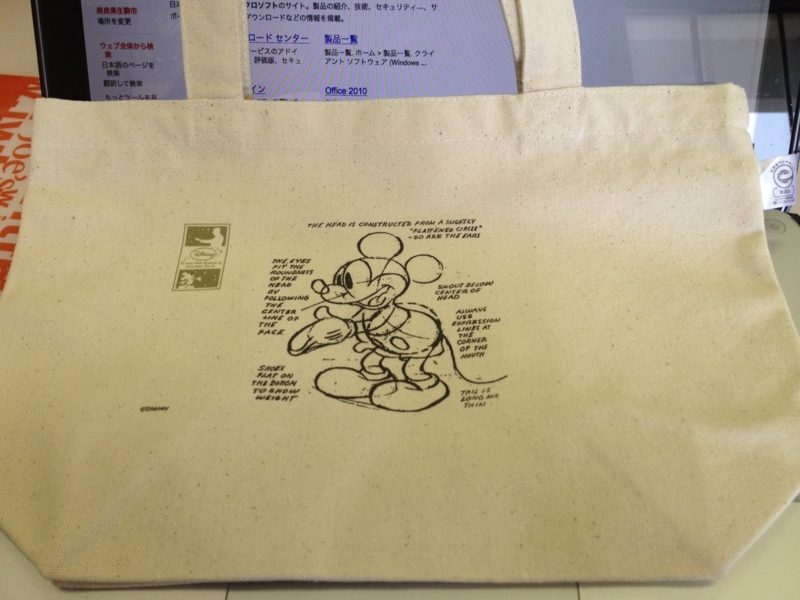 奈良県生駒市
場所を変更
ウェブ全体から検
索
日本語のページを
検索
翻訳して検索
もっとツールを見
クロソフトのサイト。製品の紹介、技術、セキュリティー、サ
ダウンロードなどの情報を掲載。
ロード センター
ービスのアドイ
評価版、セキュ
イン
製品一覧
製品一覧. ホーム > 製品一覧. クライ
アント ソフトウェア (Windows ...
Office 2010
THE HEAD IS CONSTRUCTED FROM A SLIGHTLY
"FLATTENED CIRCLE"
- SO ARE THE EARS
Disney
THE EYES
FIT THE
ROUNDNESS
OF THE
HEAD
BY
FOLLOWING
THE
CENTER
LINE OF
THE
FACE
SNOUT BELOW
CENTER OF
HEAD
ALWAYS
USE
EXPRESSION
LINES AT
THE
CORNER
OF THE
MOUTH
SHOES
FLAT ON
THE BOTTOM
TO SHOW
WEIGHT
TAIL IS
LONG AND
THIN
©DISNEY